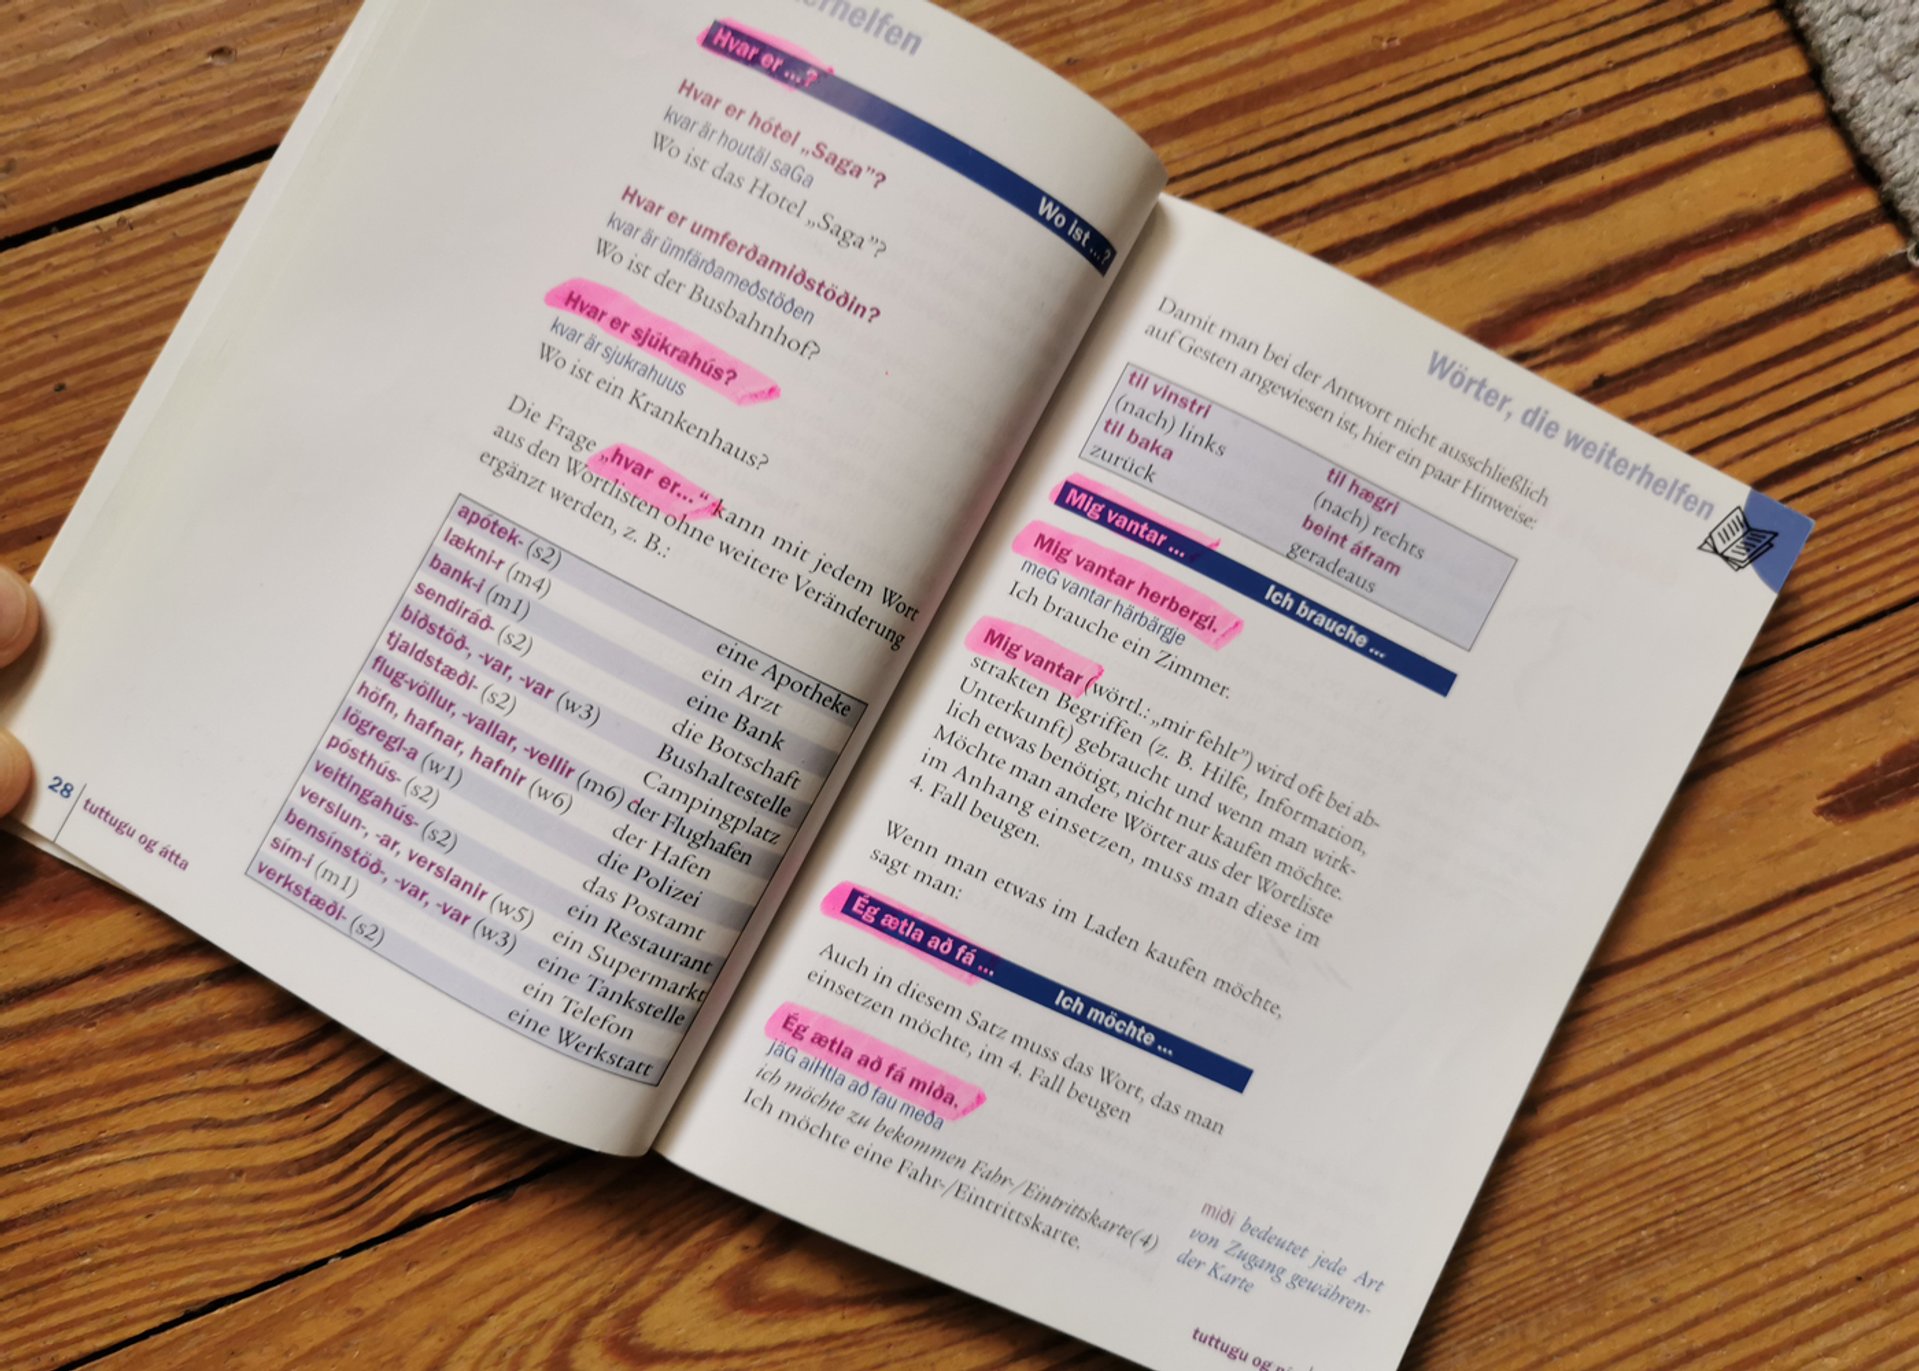 Hvar er ...? Wo ist ...?
Hvar er hótel „Saga"?
kvar är houtäl saGa
Wo ist das Hotel „Saga"?
Hvar er umferðamiðstöðin?
kvar är ümfärðameðstöðen
Wo ist der Busbahnhof?
Hvar er sjúkrahús?
kvar är sjukrahuus
Wo ist ein Krankenhaus?
Die Frage „hvar er..." kann mit jedem Wort
aus den Wortlisten ohne weitere Veränderung
ergänzt werden, z. B.:
apótek- (s2) eine Apotheke
lækni-r (m4) ein Arzt
bank-i (m1) eine Bank
sendiráð- (s2) die Botschaft
biðstöð-, -var, -var (w3) Bushaltestelle
tjaldstæði- (s2) Campingplatz
flug-völlur, -vallar, -vellir (m6) der Flughafen
höfn, hafnar, hafnir (w6) der Hafen
lögregl-a (w1) die Polizei
pósthús- (s2) das Postamt
veitingahús- (s2) ein Restaurant
verslun-, -ar, verslanir (w5) ein Supermarkt
bensínstöð-, -var, -var (w3) eine Tankstelle
sím-i (m1) ein Telefon
verkstæði- (s2) eine Werkstatt
28 tuttugu og átta
Wörter, die weiterhelfen
Damit man bei der Antwort nicht ausschließlich
auf Gesten angewiesen ist, hier ein paar Hinweise:
til vinstri til hægri
(nach) links (nach) rechts
til baka beint áfram
zurück geradeaus
Mig vantar ... Ich brauche ...
Mig vantar herbergi.
meG vantar härbärgje
Ich brauche ein Zimmer.
Mig vantar (wörtl.: „mir fehlt") wird oft bei ab-
strakten Begriffen (z. B. Hilfe, Information,
Unterkunft) gebraucht und wenn man wirk-
lich etwas benötigt, nicht nur kaufen möchte.
Möchte man andere Wörter aus der Wortliste
im Anhang einsetzen, muss man diese im
4. Fall beugen.
Wenn man etwas im Laden kaufen möchte,
sagt man:
Ég ætla að fá ... Ich möchte ...
Auch in diesem Satz muss das Wort, das man
einsetzen möchte, im 4. Fall beugen
Ég ætla að fá miða.
jäG aiHtla að fau meða
ich möchte zu bekommen Fahr-/Eintrittskarte(4)
Ich möchte eine Fahr-/Eintrittskarte.
miði bedeutet jede Art
von Zugang gewähren-
der Karte
tuttugu og